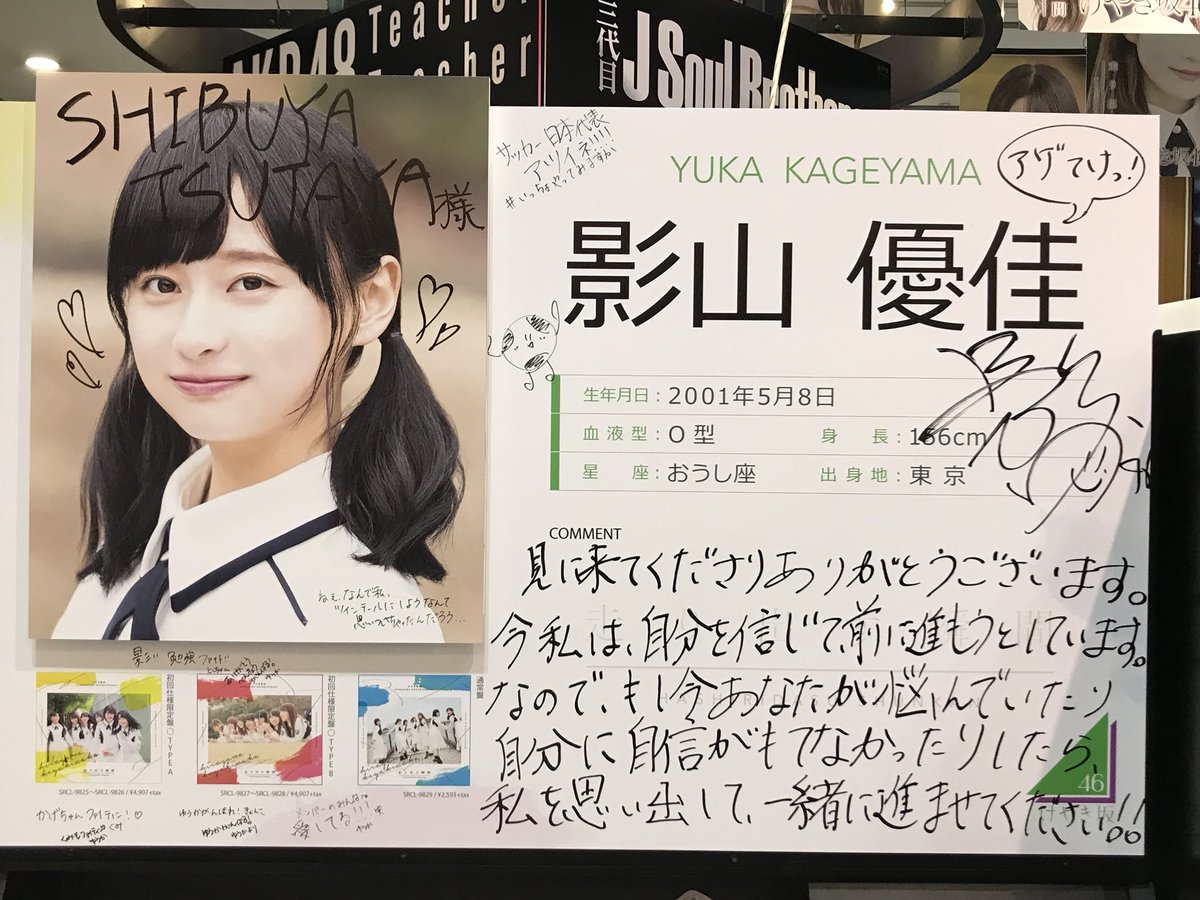 AKB48 Teacher
Teacher
三代目
J Soul Brothers
けやき坂46
SHIBUYA
TSUTAYA様
サッカー日本代表
アツイネ!!!!
#いっちょやってみますか
YUKA KAGEYAMA
アゲてけっ!
影山 優佳
生年月日：2001年5月8日
血液型：O型 身長：156cm
星座：おうし座 出身地：東京
COMMENT
見に来てくださりありがとうございます。
今私は、自分を信じて前に進もうとしています。
なので、もし今あなたが悩んでいたり
自分に自信がもてなかったりしたら、
私を思い出して、一緒に進ませてください!!
46
けやき坂
ねぇ、なんで私、
ツインテールにしようなんて
思いついちゃったんだろう…
勉強ファイト
初回仕様限定盤 TYPE A
初回仕様限定盤 TYPE B
通常盤
SRCL-9825〜SRCL-9826 / ¥4,907+tax
SRCL-9827〜SRCL-9828 / ¥4,907+tax
SRCL-9829 / ¥2,593+tax
かげちゃん ファイティン!♡
ゆうかがんばれ!
メンバーのみんな
愛してる!!!